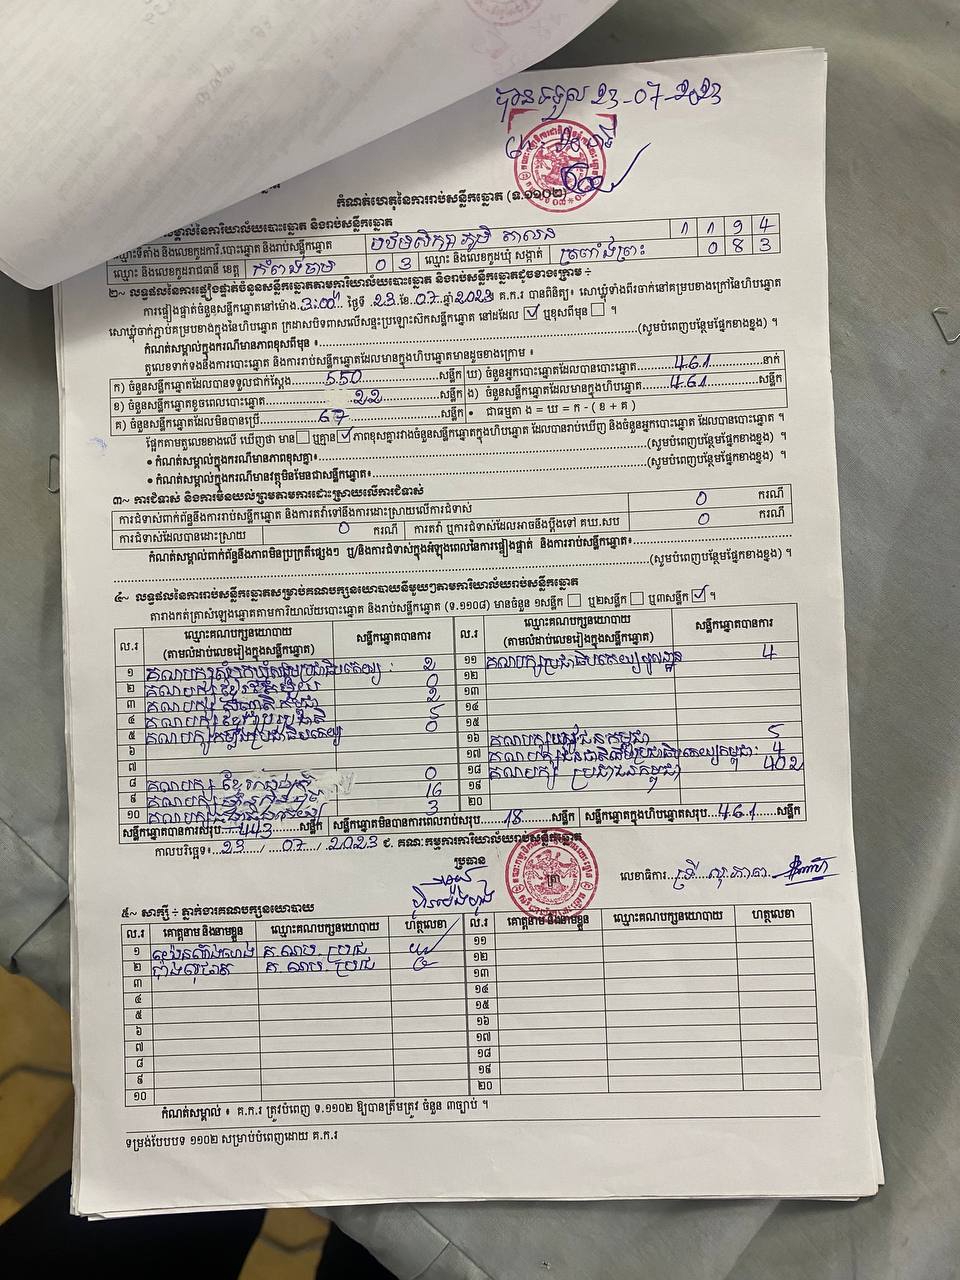 បានទទួល 23-07-2023
កំណត់ហេតុនៃការរាប់សន្លឹកឆ្នោត (ទ.១១០២)
សម្គាល់នៃការិយាល័យបោះឆ្នោត និងរាប់សន្លឹកឆ្នោត
ឈ្មោះទីតាំង និងលេខកូដការិ.បោះឆ្នោត និងរាប់សន្លឹកឆ្នោត ភូមិ 1 1 9 4
ឈ្មោះ និងលេខកូដរាជធានី ខេត្ត កំពង់ចាម 0 3 ឈ្មោះ និងលេខកូដឃុំ សង្កាត់ ត្រពាំងព្រះ 0 8 3
២~ លទ្ធផលនៃការផ្ទៀងផ្ទាត់ចំនួនសន្លឹកឆ្នោតតាមការិយាល័យបោះឆ្នោត និងរាប់សន្លឹកឆ្នោតដូចខាងក្រោម ÷
ការផ្ទៀងផ្ទាត់ចំនួនសន្លឹកឆ្នោតនៅម៉ោង 3:00 ថ្ងៃទី 23 ខែ 07 ឆ្នាំ 2023 គ.ក.រ បានពិនិត្យ៖ សោឃ្លុំទាំងពីរចាក់នៅគម្របខាងក្រៅនៃហិបឆ្នោត
សោឃ្លុំចាក់ភ្ជាប់គម្របខាងក្នុងនៃហិបឆ្នោត ក្រដាសបិទពាសលើសន្ទះប្រឡោះសិកសន្លឹកឆ្នោត នៅដដែល ☑ ឬខុសពីមុន ☐ ។
កំណត់សម្គាល់ក្នុងករណីមានភាពខុសពីមុន ៖ (សូមបំពេញបន្ថែមផ្នែកខាងខ្នង) ។
តួលេខទាក់ទងនឹងការបោះឆ្នោត និងការរាប់សន្លឹកឆ្នោតដែលមានក្នុងហិបឆ្នោតមានដូចខាងក្រោម ៖
ក) ចំនួនសន្លឹកឆ្នោតដែលបានទទួលជាក់ស្តែង 550 សន្លឹក ឃ) ចំនួនអ្នកបោះឆ្នោតដែលបានបោះឆ្នោត 461 នាក់
ខ) ចំនួនសន្លឹកឆ្នោតខូចពេលបោះឆ្នោត 22 សន្លឹក ង) ចំនួនសន្លឹកឆ្នោតដែលមានក្នុងហិបឆ្នោត 461 សន្លឹក
គ) ចំនួនសន្លឹកឆ្នោតដែលមិនបានប្រើ 67 សន្លឹក • ជាធម្មតា ង = ឃ = ក - ( ខ + គ )
ផ្អែកតាមតួលេខខាងលើ ឃើញថា មាន ☐ ឬគ្មាន ☑ ភាពខុសគ្នារវាងចំនួនសន្លឹកឆ្នោតក្នុងហិបឆ្នោត ដែលបានរាប់ឃើញ និងចំនួនអ្នកបោះឆ្នោត ដែលបានបោះឆ្នោត ។
• កំណត់សម្គាល់ក្នុងករណីមានភាពខុសគ្នា៖ (សូមបំពេញបន្ថែមផ្នែកខាងខ្នង) ។
• កំណត់សម្គាល់ក្នុងករណីមានវត្ថុមិនមែនជាសន្លឹកឆ្នោត៖ (សូមបំពេញបន្ថែមផ្នែកខាងខ្នង) ។
៣~ ការជំទាស់ និងការមិនយល់ព្រមតាមការដោះស្រាយលើការជំទាស់
ការជំទាស់ពាក់ព័ន្ធនឹងការរាប់សន្លឹកឆ្នោត និងការតវ៉ាទៅនឹងការដោះស្រាយលើការជំទាស់ 0 ករណី
ការជំទាស់ដែលបានដោះស្រាយ 0 ករណី ការតវ៉ា ឬការជំទាស់ដែលអាចនឹងប្តឹងទៅ គឃ.សប 0 ករណី
កំណត់សម្គាល់ពាក់ព័ន្ធនឹងភាពមិនប្រក្រតីផ្សេងៗ ឬ/និងការជំទាស់ក្នុងអំឡុងពេលនៃការផ្ទៀងផ្ទាត់ និងការរាប់សន្លឹកឆ្នោត៖
(សូមបំពេញបន្ថែមផ្នែកខាងខ្នង) ។
៤~ លទ្ធផលនៃការរាប់សន្លឹកឆ្នោតសម្រាប់គណបក្សនយោបាយនីមួយៗតាមការិយាល័យរាប់សន្លឹកឆ្នោត
តារាងកត់ត្រាសំឡេងឆ្នោតតាមការិយាល័យបោះឆ្នោត និងរាប់សន្លឹកឆ្នោត (ទ.១១០៨) មានចំនួន ១សន្លឹក ☐ ឬ២សន្លឹក ☐ ឬ៣សន្លឹក ☑ ។
ល.រ ឈ្មោះគណបក្សនយោបាយ (តាមលំដាប់លេខរៀងក្នុងសន្លឹកឆ្នោត) សន្លឹកឆ្នោតបានការ ល.រ ឈ្មោះគណបក្សនយោបាយ (តាមលំដាប់លេខរៀងក្នុងសន្លឹកឆ្នោត) សន្លឹកឆ្នោតបានការ
១ គណបក្ស 2 ១១ គណបក្សប្រជាធិបតេយ្យមូលដ្ឋាន 4
២ គណបក្ស 0 ១២
៣ គណបក្ស 2 ១៣
៤ គណបក្ស ១៤
៥ គណបក្សកម្លាំងប្រជាធិបតេយ្យ 0 ១៥
៦ ១៦ គណបក្សយុវជនកម្ពុជា 5
៧ ១៧ គណបក្សជនជាតិដើមប្រជាធិបតេយ្យកម្ពុជា 4
៨ គណបក្ស ខ្មែរ 0 ១៨ គណបក្ស ប្រជាជនកម្ពុជា 402
៩ គណបក្ស 16 ១៩
១០ គណបក្ស 3 ២០
សន្លឹកឆ្នោតបានការសរុប 443 សន្លឹក សន្លឹកឆ្នោតមិនបានការពេលរាប់សរុប 18 សន្លឹក សន្លឹកឆ្នោតក្នុងហិបឆ្នោតសរុប 461 សន្លឹក
កាលបរិច្ឆេទ៖ 23 / 07 / 2023 ៩. គណៈកម្មការការិយាល័យរាប់សន្លឹកឆ្នោត
ប្រធាន ត្រា លេខាធិការ
៥~ សាក្សី ÷ ភ្នាក់ងារគណបក្សនយោបាយ
ល.រ គោត្តនាម និងនាមខ្លួន ឈ្មោះគណបក្សនយោបាយ ហត្ថលេខា ល.រ គោត្តនាម និងនាមខ្លួន ឈ្មោះគណបក្សនយោបាយ ហត្ថលេខា
១ ១១
២ ១២
៣ ១៣
៤ ១៤
៥ ១៥
៦ ១៦
៧ ១៧
៨ ១៨
៩ ១៩
១០ ២០
កំណត់សម្គាល់ ៖ គ.ក.រ ត្រូវបំពេញ ទ.១១០២ ឱ្យបានត្រឹមត្រូវ ចំនួន ៣ច្បាប់ ។
ទម្រង់បែបបទ ១១០២ សម្រាប់បំពេញដោយ គ.ក.រ